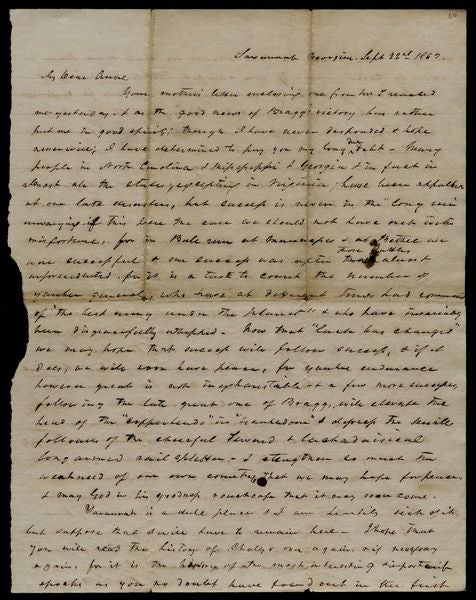 Savannah Georgia. Sept 22nd 1863.
My Dear Anne
Your mothers letter enclosing one from Mr. J reached
me yesterday. & as the good news of Bragg's victory has rather
put me in good spirits; though I have never desponded & hope
never will; I have determined to pay you my long due debt - Many
people in North Carolina & Mississippi & Georgia & in fact in
almost all the states, excepting in Virginia; have been appalled
at our late disasters, but success is never in the long run
unvarying if this were the case we should not have met with
misfortune, for in Bull run at Manassas & at Bethel we
were successful & our success was after those battles almost
unprecedented. for it is a task to count the number of
yankee generals, who have at different times had command
of "the best army under the planet" & who have invariably
been disgracefully whipped - Now that "luck has changed"
we may hope that success will follow success, & if it
does, we will soon have peace, for yankee endurance
however great is not inexhaustible & a few more successes
following the late great one of Bragg, will elevate the
head of the "copperheads" in & depress the servile
followers of the cheerful &
long armed rail splitter - & strengthen so much the
weakened of our own country, that we may hope for peace
& may God in his goodness vouchsafe that it may soon come.
Savannah is a dull place & I am heartily sick of it,
but suppose that I will have to remain here - I hope that
you will read the history of Charles over again, if necessary
again, for it is the history of the most interesting & important
epochs as you no doubt have found out in the first